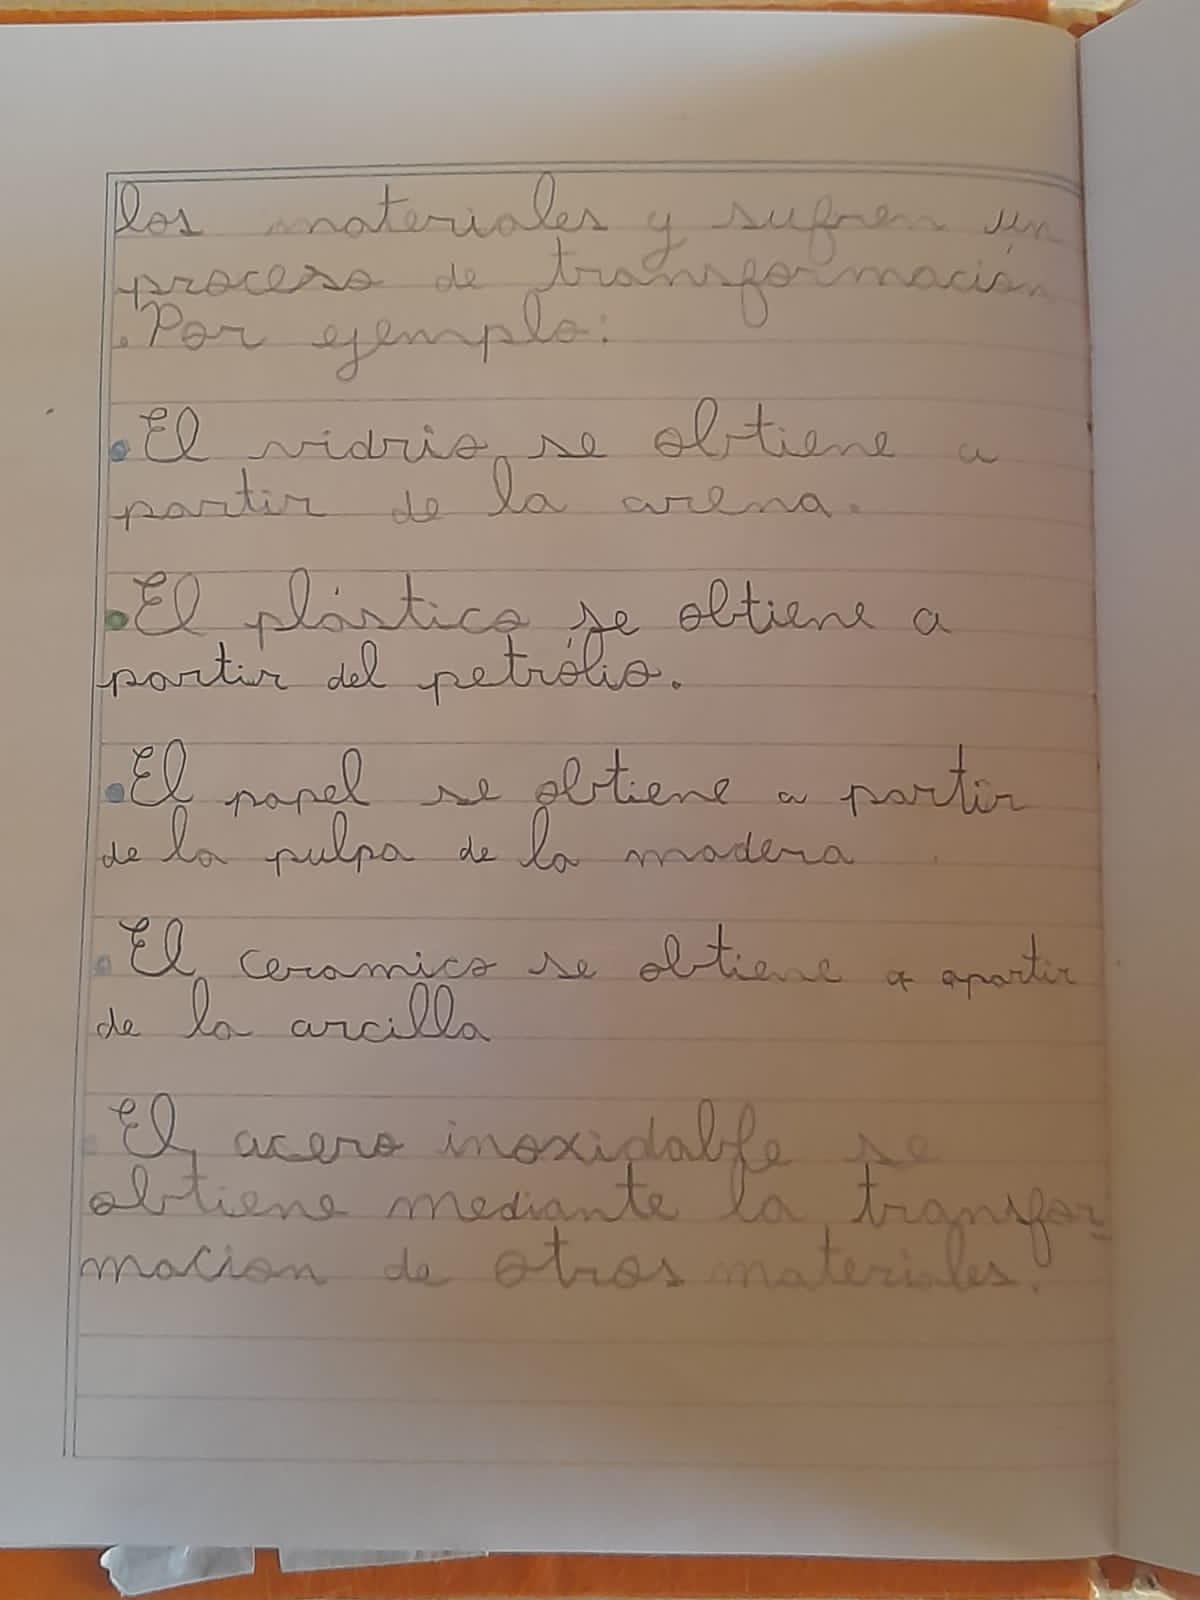 los materiales y sufren un
proceso de transformación
. Por ejemplo:
• El vidrio se obtiene a
partir de la arena.
• El plástico se obtiene a
partir del petrólio.
• El papel se obtiene a partir
de la pulpa de la madera
• El ceramico se obtiene a apartir
de la arcilla
El acero inoxidable se
obtiene mediante la transfor-
macion de otros materiales.